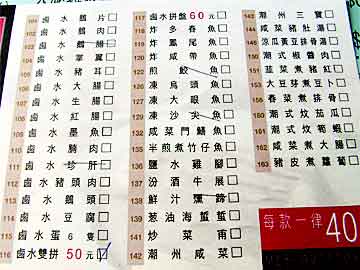 鹵水鵝片
鹵水鵝肉
103 鹵水鵝腸
104 鹵水掌翼
105 鹵水豬耳
106 鹵水大腸
107 鹵水生腸
108 鹵水紅腸
109 鹵水墨魚
110 鹵水腩肉
111 鹵水珍肝
112 鹵水豬頭肉
113 鹵水鵝頭
114 鹵水豆腐
115 鹵水蛋6隻
116 鹵水雙拼50元
117 鹵水拼盤60元
118 炸多春魚
119 炸鳳尾魚
120 炸咸帶魚
122 煎鮫魚
125 凍烏頭魚
127 凍大眼魚
128 凍沙尖魚
132 咸菜門鱔魚
135 半煎煮竹仔魚
136 鹽水雞腳
137 汾酒牛𦟌
138 鮮汁燻蹄
139 葱油海蜇
141 炒菜甫
142 潮州咸菜
143 潮州三寶
144 咸菜豬肚湯
146 涼瓜黃豆排骨湯
150 潮式椒醬肉
151 韮菜煮豬紅
153 大豆芽煮豆卜
156 春菜煮排骨
160 潮式炆茄瓜
161 潮式炆筍蝦
162 咸菜炆門鱔
163 豬皮煮蘿蔔
每款一律40